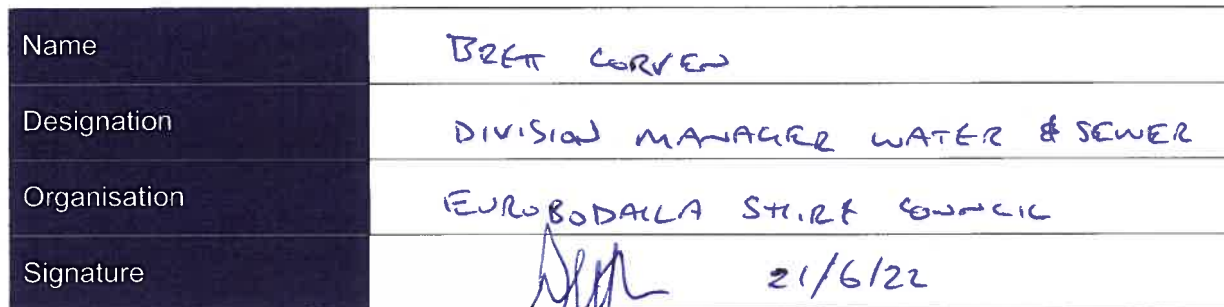 Name BRETT CORVEN
Designation DIVISION MANAGER WATER & SEWER
Organisation EUROBODALLA SHIRE COUNCIL
Signature 21/6/22